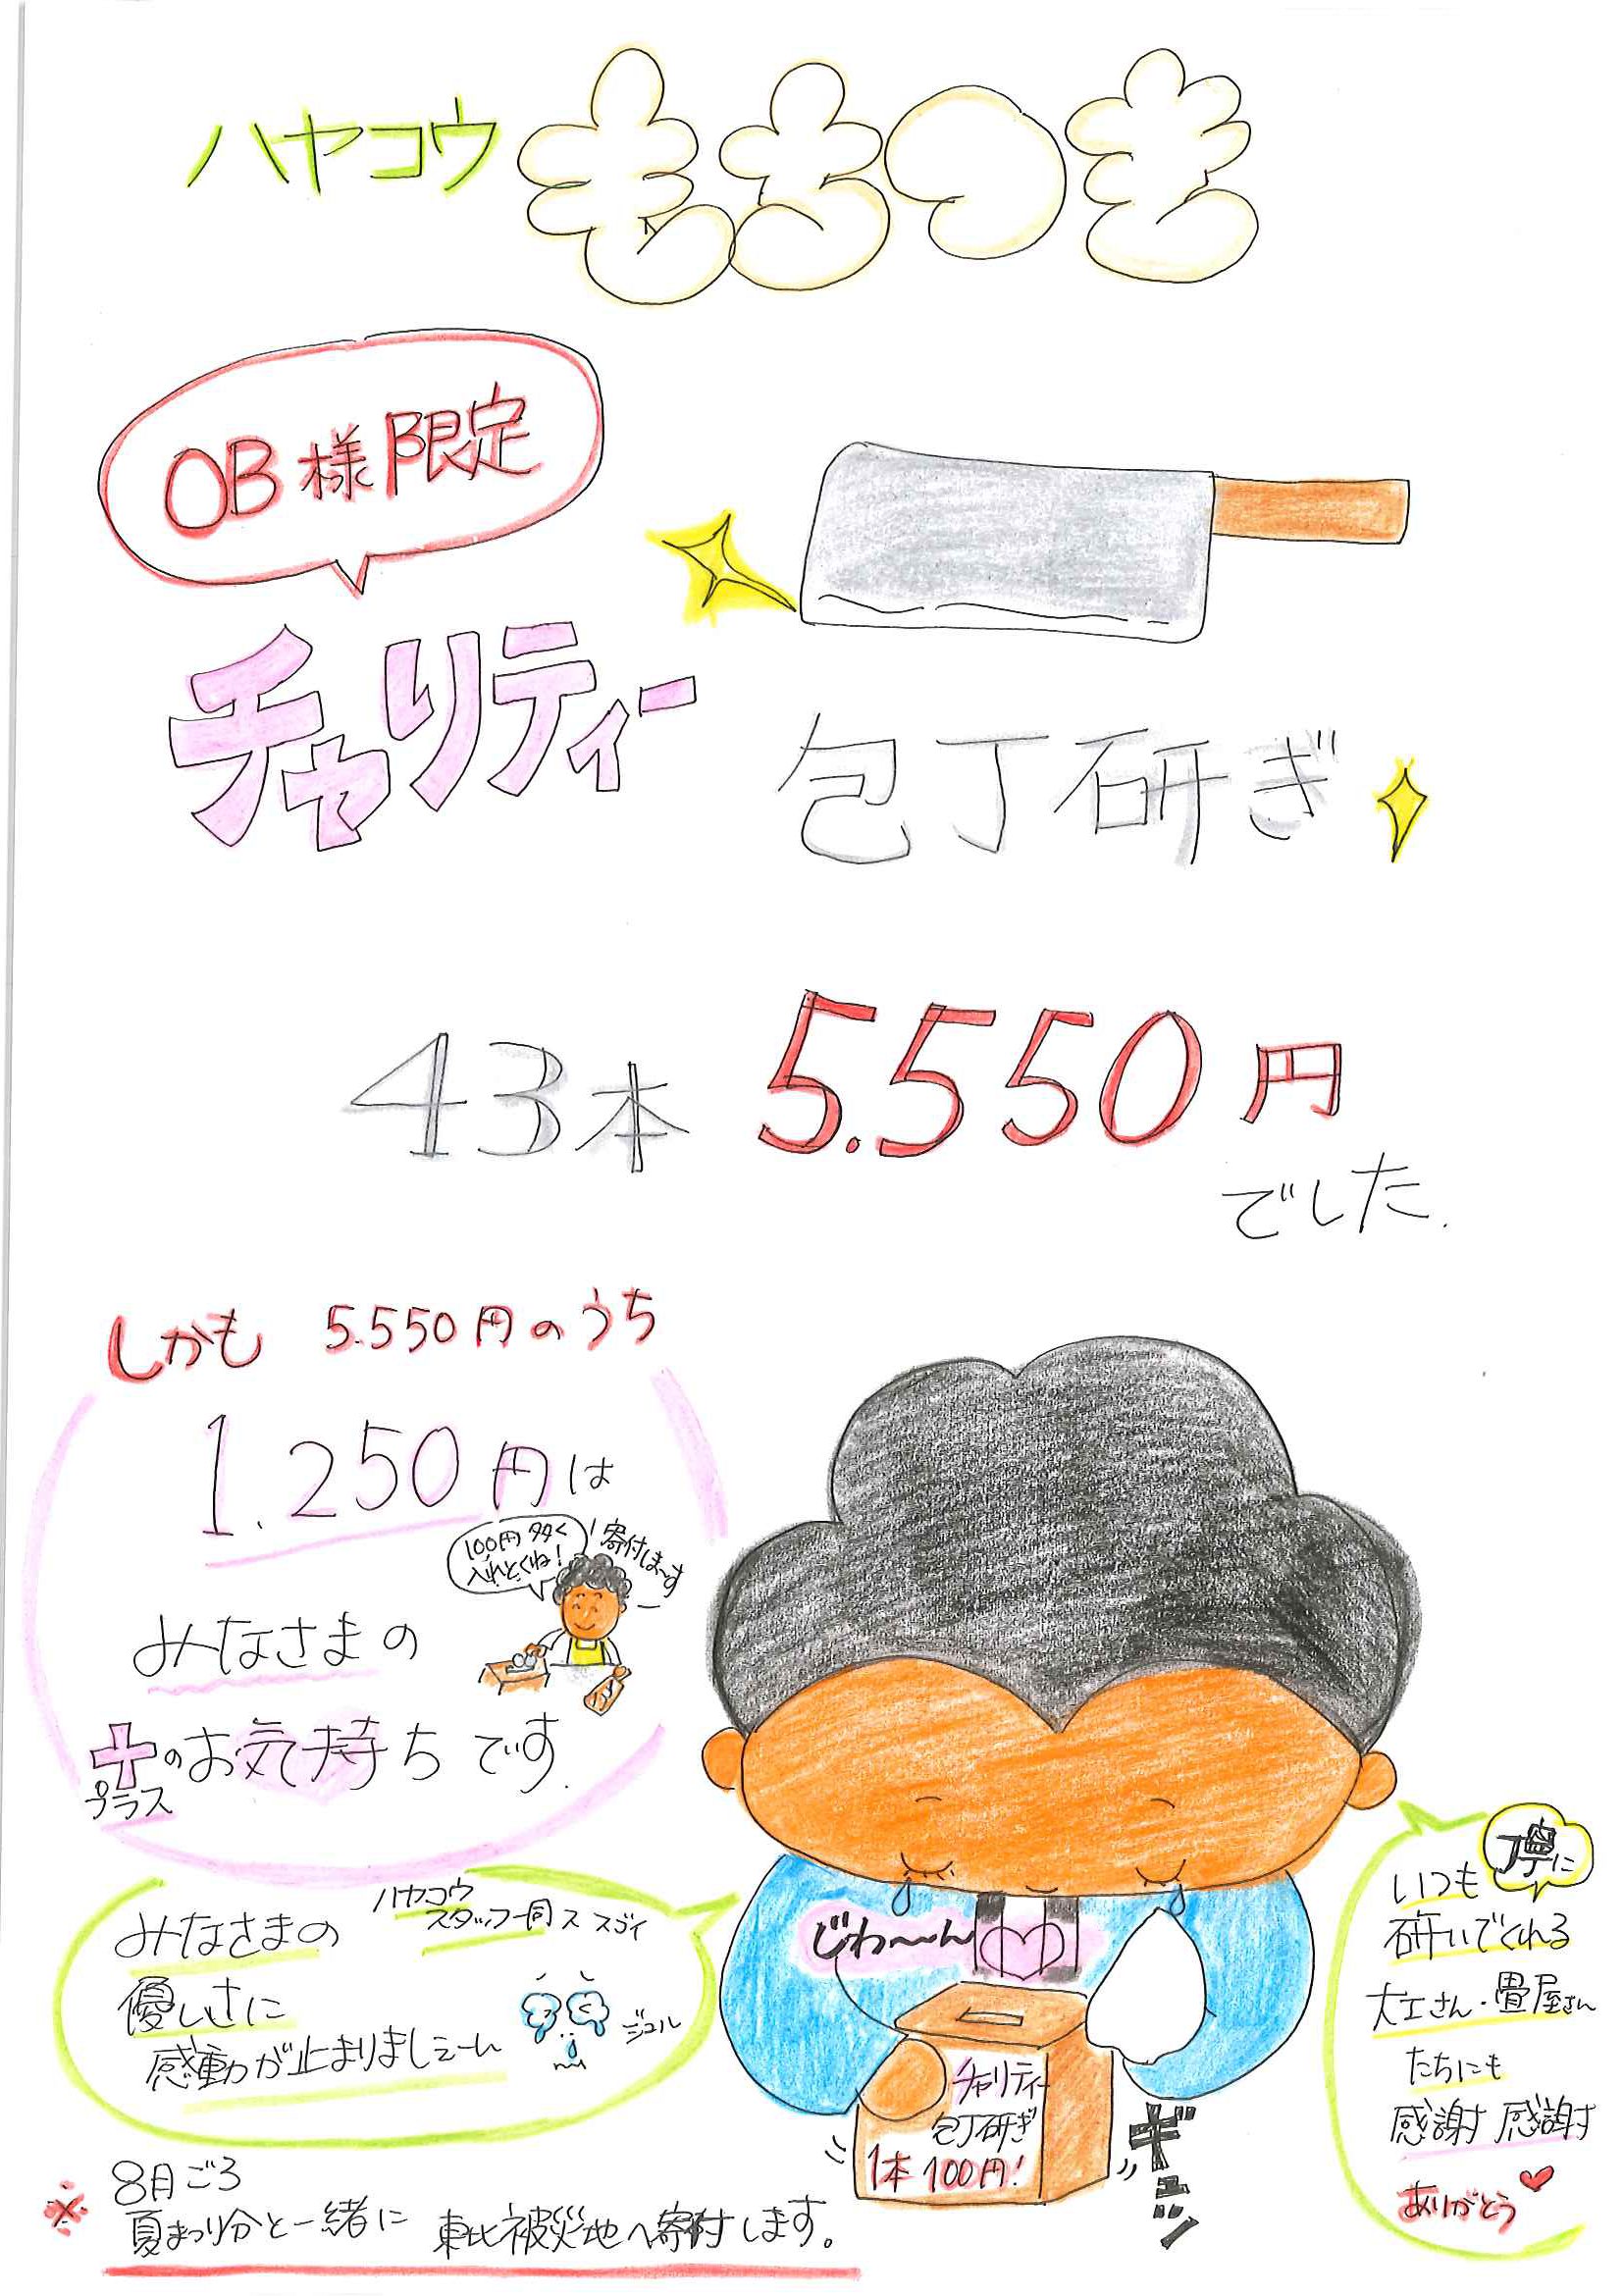 ハヤコウ もちつき
OB様限定
チャリティー
包丁研ぎ
43本 5.550円
でした.
しかも 5.550円のうち
1.250円は
100円多く
入れとくね!
寄付しま〜す
みなさまの
+のお気持ちです.
プラス
ハヤコウ
スタッフ一同
みなさまの
優しさに
感動が止まりましぇーん
ジュル
じわ〜〜ん
チャリティー
包丁研ぎ
1本100円!
ギュッ
いつも丁寧に
研いでくれる
大工さん・畳屋さん
たちにも
感謝 感謝
ありがとう
※ 8月ごろ
夏まつり分と一緒に 東北被災地へ寄付します。